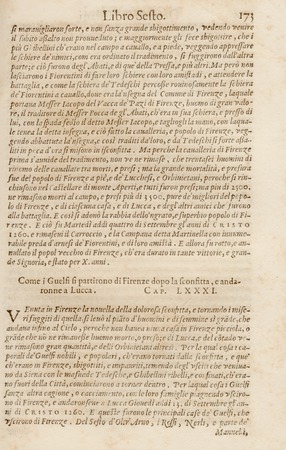 Libro Sesto. 173
si marauigliaron forte, e non sanza grande sbigottimento, vedendo venire
il subito assalto non proueduto; e maggiormente gli fece sbigottire, che i
più Ghibellini ch'erano nel campo a cauallo, e a piede, veggendo appressare
le schiere de' nimici, com'era ordinato il tradimento, si fuggirono dall'altra
parte; ciò furono degl'Abati, e di que' della Pressa, e più altri. Ma però non
lasciarono i Fiorentini di fare loro schiere con loro amistadi, e attendere la
battaglia, e come la schiera de' Tedeschi percosse rouinosamente la schiera
de' Fiorentini a cauallo, doue era la insegna del Comune di Firenze, laquale
portaua Messer Iacopo del Vacca de' Pazzi di Firenze, huomo di gran valo-
re, il traditore di Messer Bocca degl'Abati, ch'era in sua schiera, e presso di
lui, con la spada fedìo il detto Messer Iacopo, e tagliogli la mano, con laqua-
le teneua la detta insegna, e ciò fatto la caualleria, e popolo di Firenze, veg-
gendo abbattuta la insegna, e così traditi da loro, e da Tedeschi sì forte assa-
liti in poca d'ora si misono in isconfitta. Ma perche la caualleria di Firenze
prima s'auuide del tradimento, non ve ne rimase, che trentasei huomini di
rinomo delle caualcate tra morti, e presi; ma la grande mortalità, e presura
fue del popolo di Firenze a piè, e de' Lucchesi, e Orbinetani, perochè si rin-
chiusono nel castello di monte Aperti, e tutti furon presi; ma più di 2500.
ne rimasono morti al campo, e presi più di 1500. pure de' migliori del popo-
lo di Firenze, e di ciascuna casa, e di Lucca, e degl'altri amici che furono
alla battaglia. E così si adonò la rabbia dello'ngrato, e superbo popolo di Fi-
renze. E ciò fu Martedì addì quattro di settembre gl'anni di CRISTO
1260. e rimasevi il Carroccio, e la Campana detta Martinella con innumera-
bile preda d'arnesi de' Fiorentini, e di loro amistà. E allora fu rotto, e an-
nullato il popol vecchio di Firenze, ch'era durato in tante vittorie, e gran-
de Signoria, e stato per X. anni.
Come i Guelfi si partirono di Firenze dopo la sconfitta, e anda-
ronne a Lucca. CAP. LXXXI.
VEnuta in Firenze la nouella della dolorosa sconfitta, e tornando i mise-
ri fuggiti di quella si leuò il pianto d'huomini e di femmine sì grande, che
andaua infino al Cielo, peroche non haueua niuna casa in Firenze piccola, o
grande che uò ne rimanesse huomo morto, o preso; e di Lucca, e del côtado ve
ne rimasono gran quantità, e degli Orbinetani altresì. Per la qual cosa i ca-
porali de' Guelfi nobili, e popolari, ch'erano tornati dalla sconfitta, e que'
ch'erano in Firenze, sbigottiti, e impauriti, temendo degl'usciti che veniua-
no da Siena con le masnade Tedesche, e Ghibellini ribelli, e confinati, ch'era-
no fuori della Città, cominciarono a tornar dentro. Per laqual cosa i Guelfi
sanza altra cagione, o cacciamento, con le loro famiglie piagnendo vsciro-
no di Firenze, e andaronsene a Lucca Giouedì addì 13. di Settembre gl'an-
ni di CRISTO 1260. E queste furono le principali case de' Guelfi, che
vscirono di Firenze. Del Sesto d'Oltr'Arno, i Rossi, Nerli, e parte de'
Mannelli,